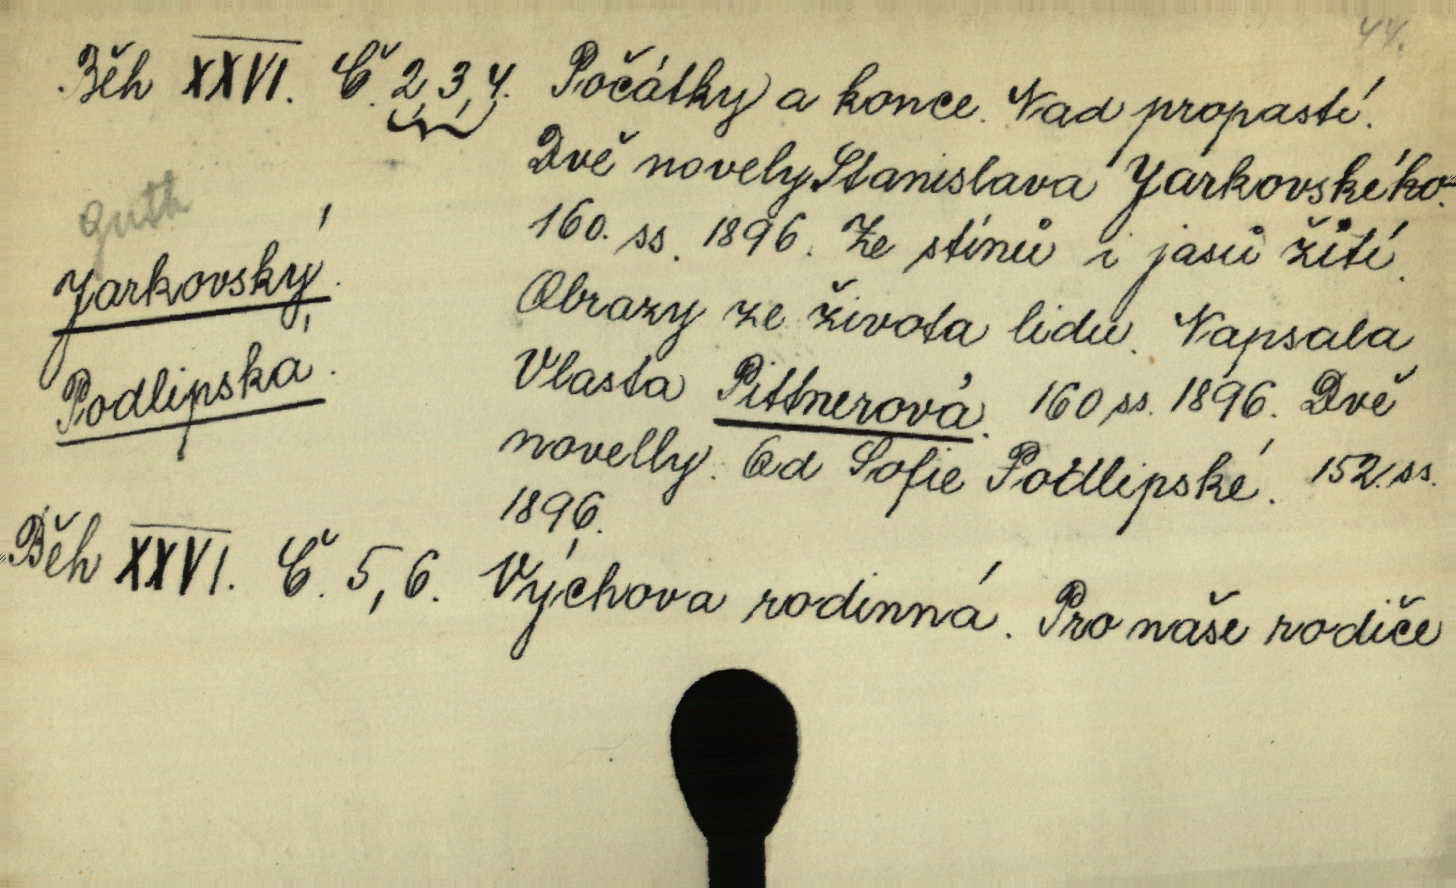 44.
Běh XXVI. Č. 2, 3, 4. Počátky a konce. Nad propastí.
Dvě novely Stanislava Jarkovského.
guth
160. ss. 1896. Ze stínů i jasů žití.
Jarkovský.
Obrazy ze života lidu. Napsala
Vlasta Pittnerová. 160 ss. 1896. Dvě
Podlipská.
novelly. Od Sofie Podlipské. 152. ss.
1896.
Běh XXVI. Č. 5, 6. Výchova rodinná. Pro naše rodiče